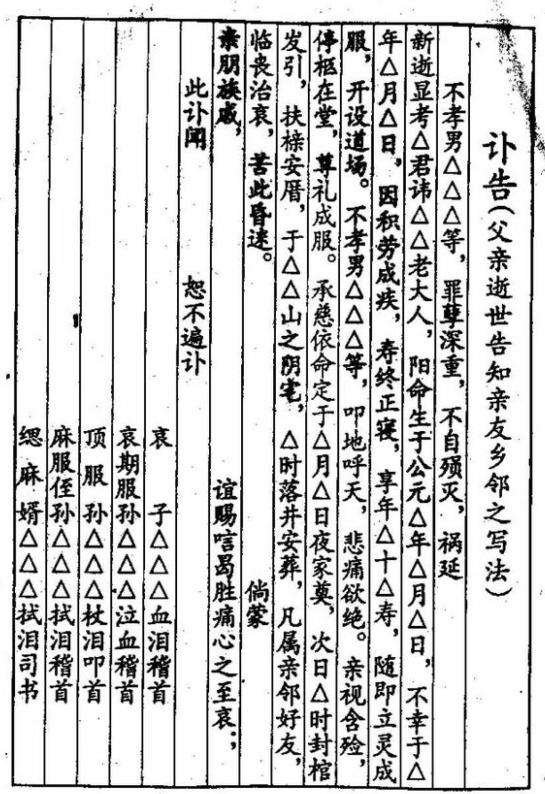 讣告(父亲逝世告知亲友乡邻之写法)
不孝男△△△等，罪孽深重，不自殒灭，祸延
新逝显考△君讳△△老大人，阳命生于公元△年△月△日，不幸于△
年△月△日，因积劳成疾，寿终正寝，享年△十△寿，随即立灵成
服，开设道场。不孝男△△△等，叩地呼天，悲痛欲绝。亲视含殓，
停柩在堂，尊礼成服。承慈依命定于△月△日夜家奠，次日△时封棺
发引，扶榇安厝，于△△山之阴宅，△时落井安葬，凡属亲邻好友，
临丧治哀，苦此昏迷。 倘蒙
亲朋族戚， 谊赐唁曷胜痛心之至哀；
此讣闻 恕不遍讣
哀 子△△△血泪稽首
哀期服孙△△△泣血稽首
顶服 孙△△△杖泪叩首
麻服侄孙△△△拭泪稽首
缌麻 婿△△△拭泪司书